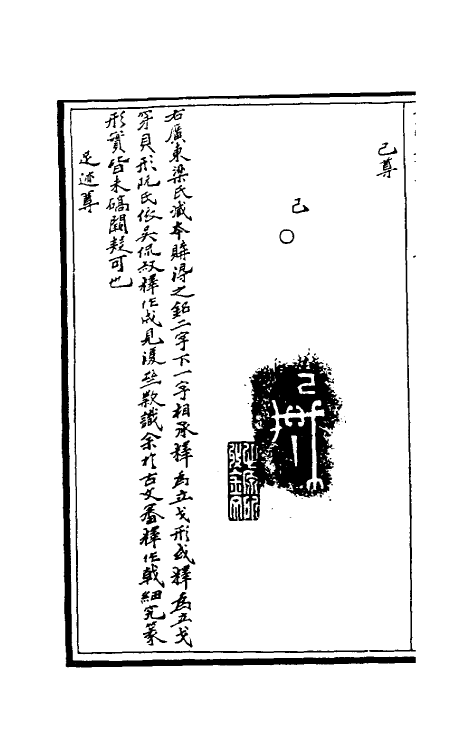 己尊
己
○
右廣東梁氏藏本購得之銘二字下一字相承釋為立戈形或釋為立戈
穿貝形阮氏依吳侃叔釋作成見漢 款識余於古文審釋作戟細究篆
形實皆未碻闕疑可也
足迹尊